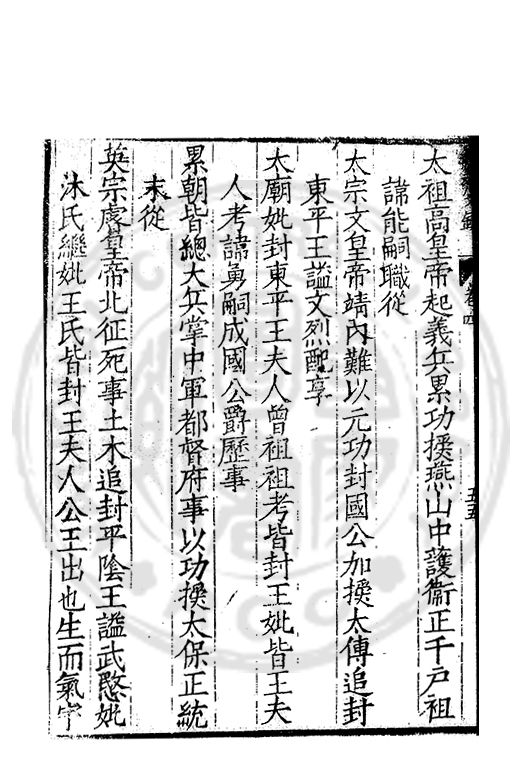 太祖高皇帝起義兵累功授燕山中護衛正千戶祖
諱能嗣職從
太宗文皇帝靖內難以元功封國公加授太傅追封
東平王謚文烈配享
太廟妣封東平王夫人曾祖祖考皆封王妣皆王夫
人考諱勇嗣成國公爵歷事
累朝皆總大兵掌中軍都督府事以功授太保正統
末從
英宗睿皇帝北征死事土木追封平陰王謚武愍妣
沐氏繼妣王氏皆封王夫人公王出也生而氣宇
卷四
五五